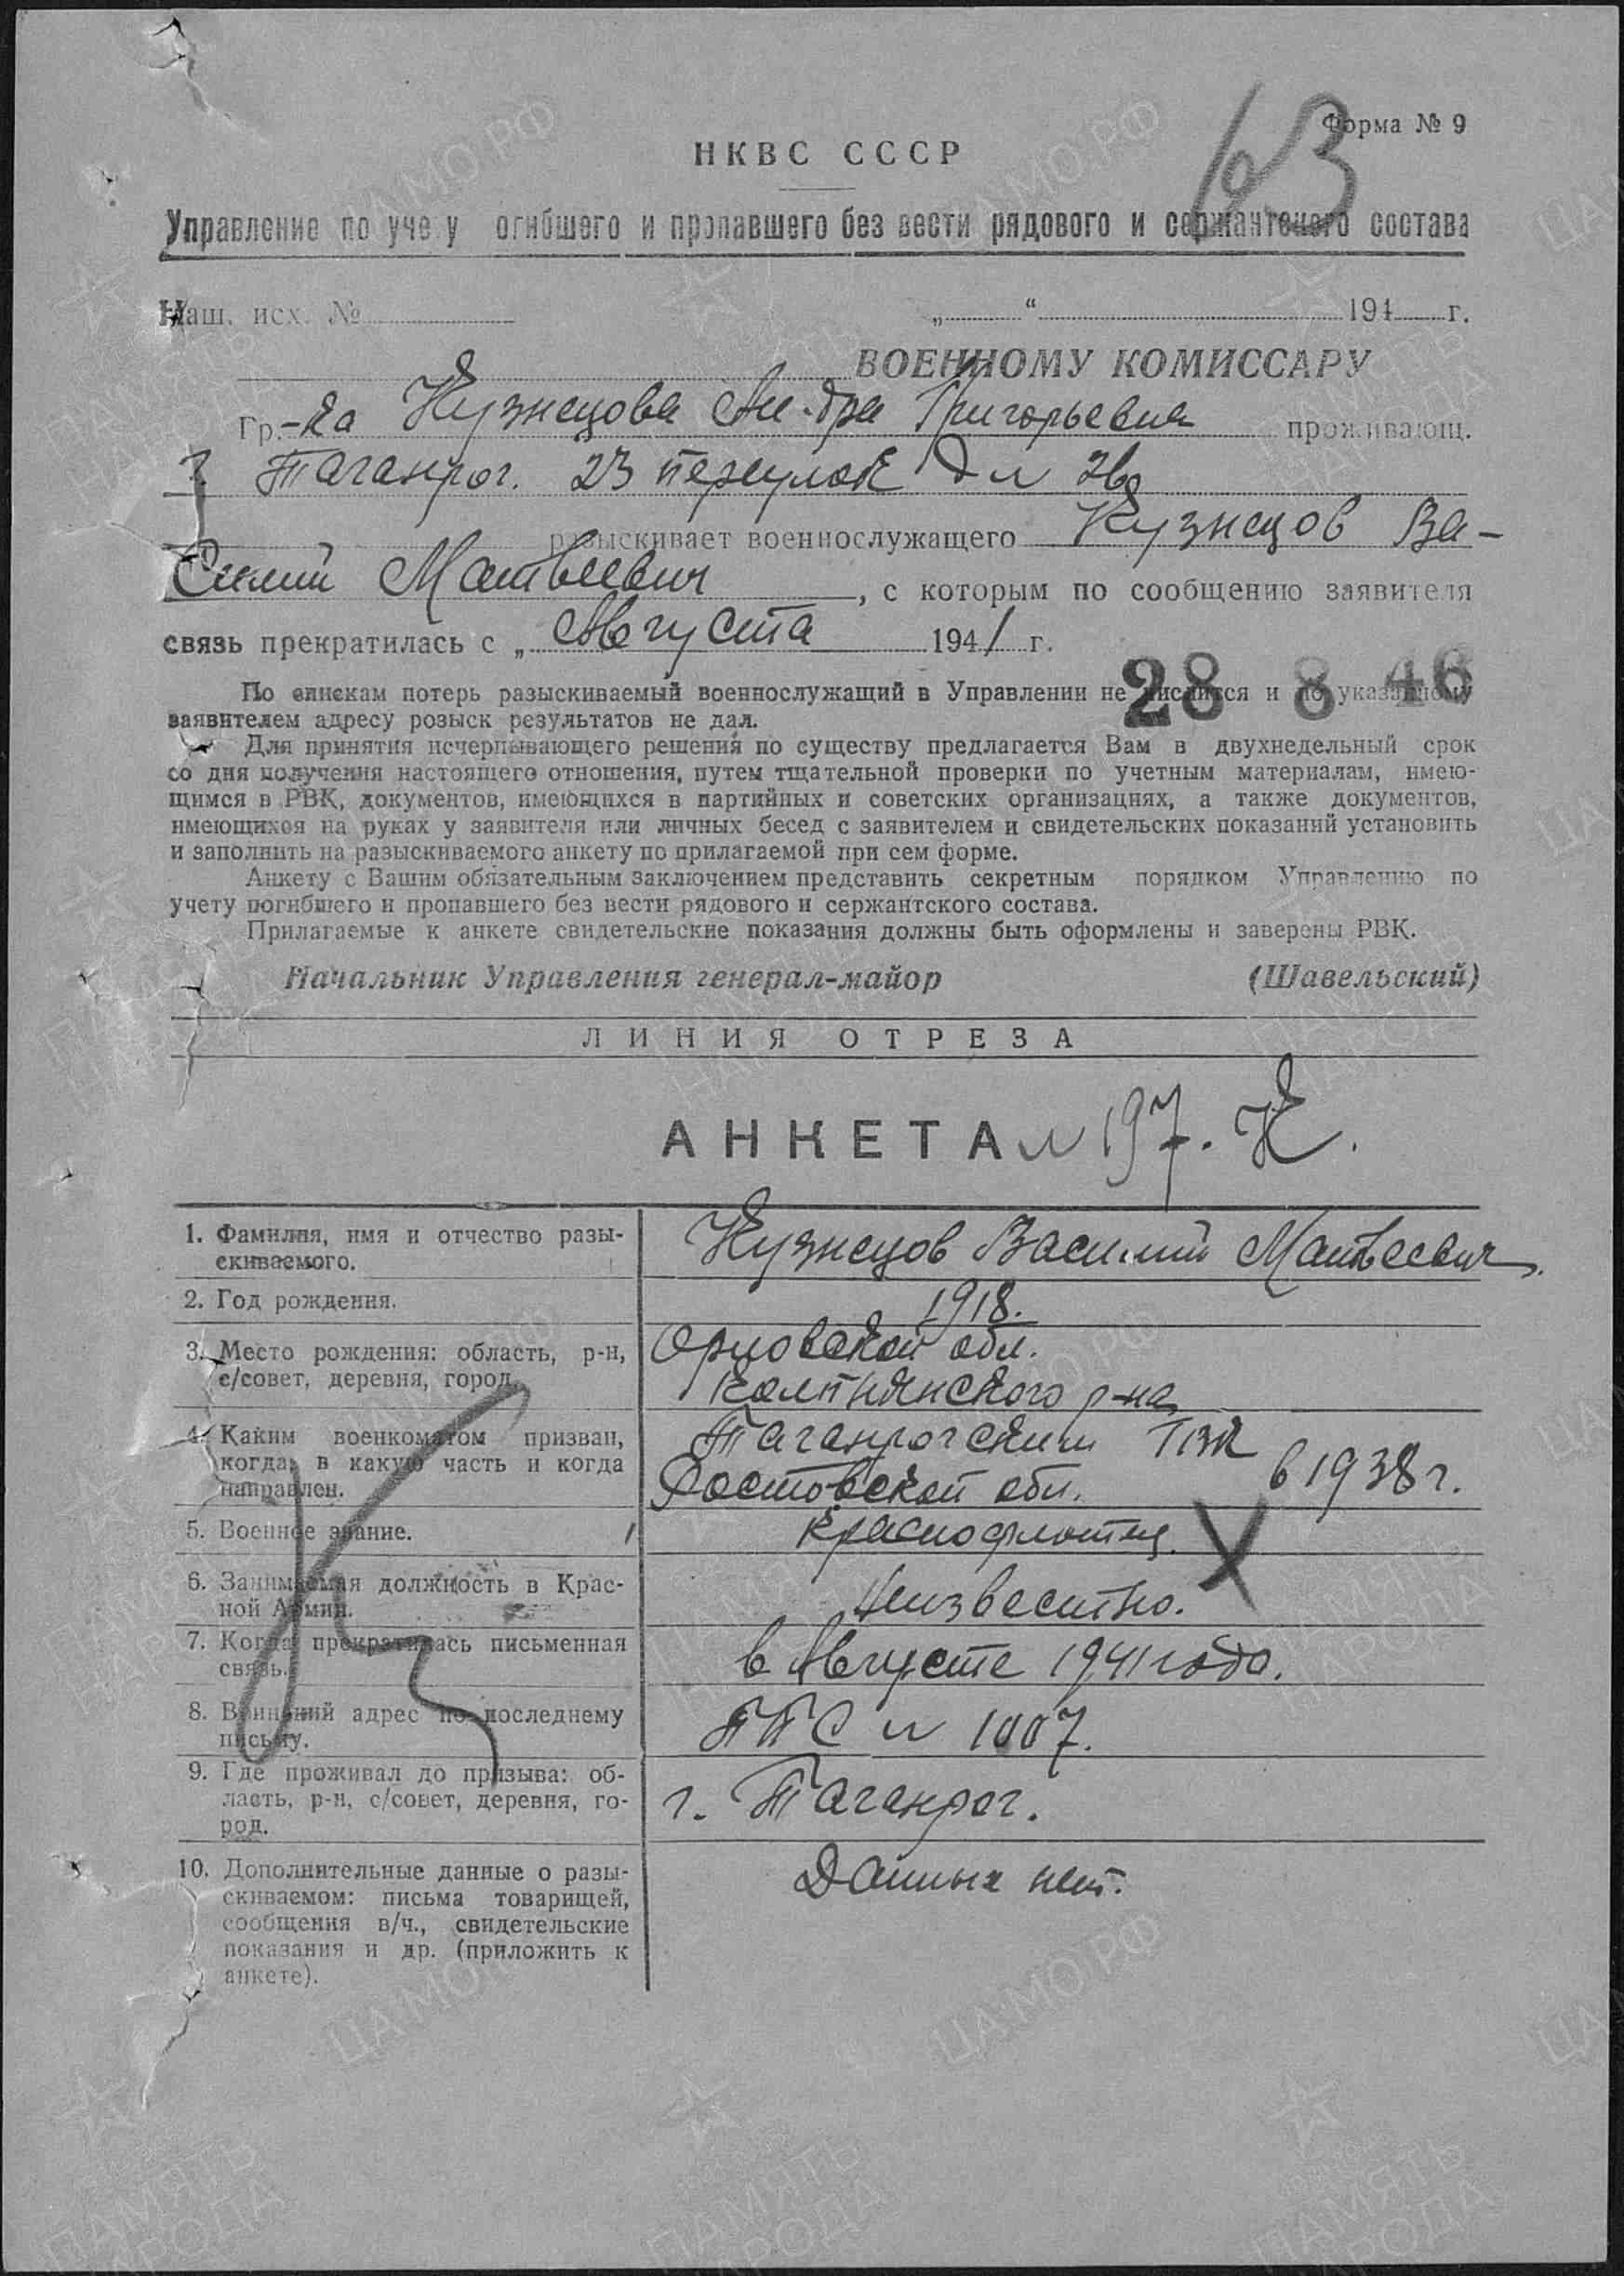 Форма № 9
63
НКВС СССР
Управление по уче у огибшего и пропавшего без вести рядового и сержантского состава
Наш. исх. № „ “ 194 г.
ВОЕННОМУ КОМИССАРУ
Гр.-ка Кузнецова Ал-дра Григорьевна проживающ.
г. Таганрог. 23 переулок д №
разыскивает военнослужащего Кузнецов Ва-
силий Матвеевич, с которым по сообщению заявителя
связь прекратилась с „ Августа 1941 г.
28 8 46
По спискам потерь разыскиваемый военнослужащий в Управлении не числится и по указанному
заявителем адресу розыск результатов не дал.
Для принятия исчерпывающего решения по существу предлагается Вам в двухнедельный срок
со дня получения настоящего отношения, путем тщательной проверки по учетным материалам, имею-
щимся в РВК, документов, имеющихся в партийных и советских организациях, а также документов,
имеющихся на руках у заявителя или личных бесед с заявителем и свидетельских показаний установить
и заполнить на разыскиваемого анкету по прилагаемой при сем форме.
Анкету с Вашим обязательным заключением представить секретным порядком Управлению по
учету погибшего и пропавшего без вести рядового и сержантского состава.
Прилагаемые к анкете свидетельские показания должны быть оформлены и заверены РВК.
Начальник Управления генерал-майор (Шавельский)
ЛИНИЯ ОТРЕЗА
АНКЕТА № 197. К.
1. Фамилия, имя и отчество разы-
скиваемого.
Кузнецов Василий Матвеевич.
2. Год рождения.
1918.
3. Место рождения: область, р-н,
с/совет, деревня, город.
Орловской обл.
Колпнянского р-на
4. Каким военкоматом призван,
когда, в какую часть и когда
направлен.
Таганрогским ГВК
Ростовской обл. в 1938 г.
5. Военное звание.
Краснофлотец.
6. Занимаемая должность в Крас-
ной Армии.
Неизвестно.
7. Когда прекратилась письменная
связь.
в Августе 1941 года.
8. Воинский адрес по последнему
письму.
ППС № 1007.
9. Где проживал до призыва: об-
ласть, р-н, с/совет, деревня, го-
род.
г. Таганрог.
10. Дополнительные данные о разы-
скиваемом: письма товарищей,
сообщения в/ч., свидетельские
показания и др. (приложить к
анкете).
Данных нет.